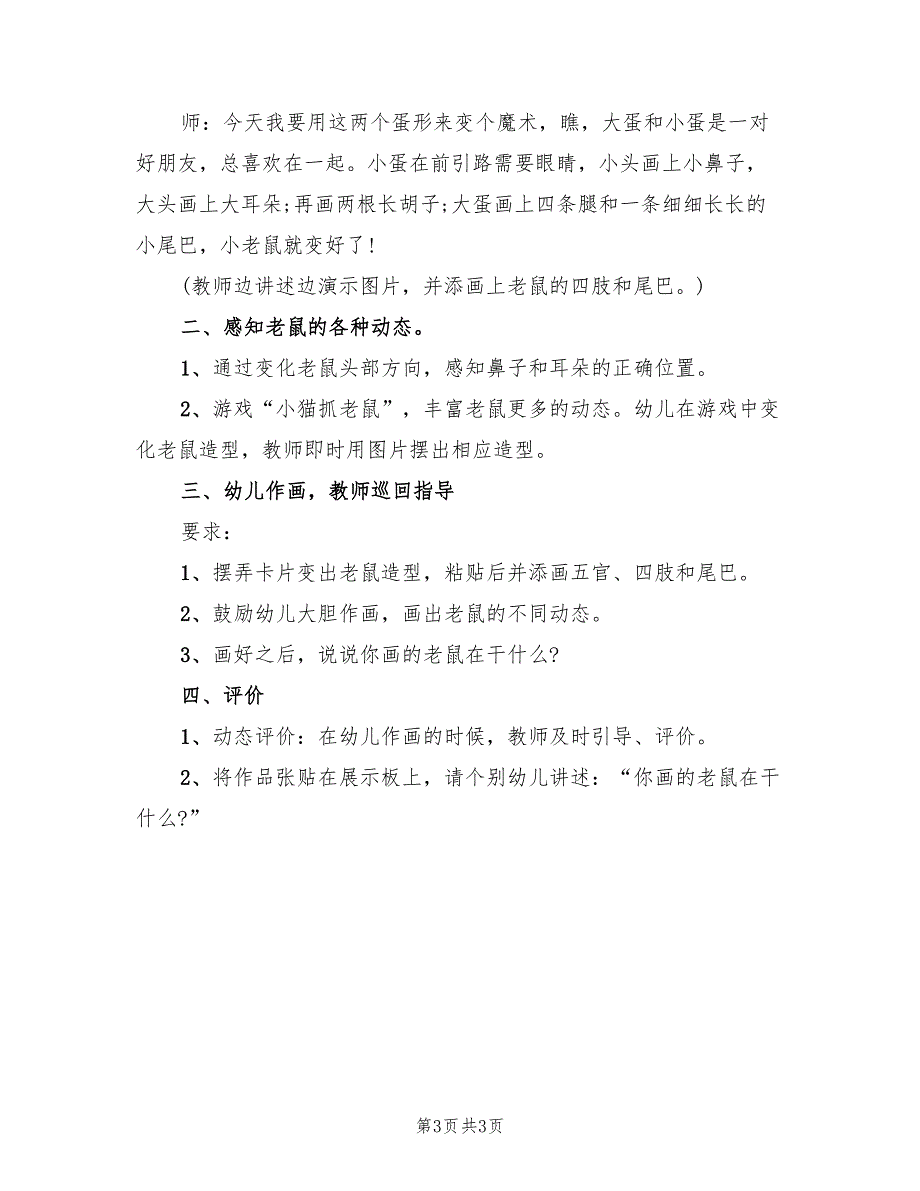 师：今天我要用这两个蛋形来变个魔术，瞧，大蛋和小蛋是一对
好朋友，总喜欢在一起。小蛋在前引路需要眼睛，小头画上小鼻子，
大头画上大耳朵;再画两根长胡子;大蛋画上四条腿和一条细细长长的
小尾巴，小老鼠就变好了!
(教师边讲述边演示图片，并添画上老鼠的四肢和尾巴。)
二、感知老鼠的各种动态。
1、通过变化老鼠头部方向，感知鼻子和耳朵的正确位置。
2、游戏“小猫抓老鼠”，丰富老鼠更多的动态。幼儿在游戏中变
化老鼠造型，教师即时用图片摆出相应造型。
三、幼儿作画，教师巡回指导
要求：
1、摆弄卡片变出老鼠造型，粘贴后并添画五官、四肢和尾巴。
2、鼓励幼儿大胆作画，画出老鼠的不同动态。
3、画好之后，说说你画的老鼠在干什么?
四、评价
1、动态评价：在幼儿作画的时候，教师及时引导、评价。
2、将作品张贴在展示板上，请个别幼儿讲述：“你画的老鼠在干
什么?”
第3页 共3页